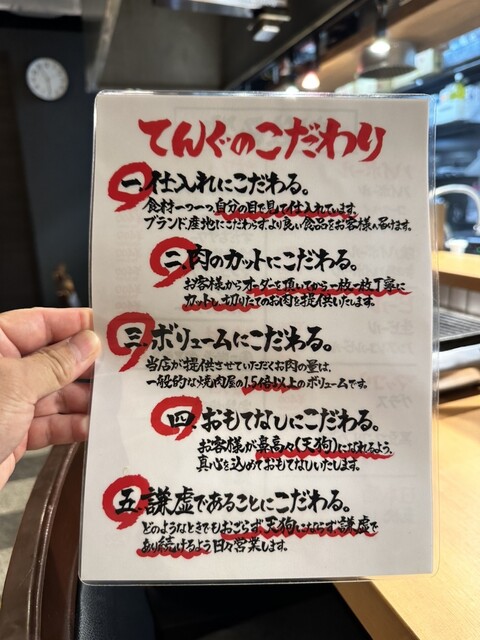 てんぐのこだわり
一、仕入れにこだわる。
食材一つ一つ、自分の目で見て仕入れています。
ブランド、産地にこだわらず、より良い食品をお客様へ届けます。
二、肉のカットにこだわる。
お客様からオーダーを頂いてから一枚一枚丁寧に
カットし、切りたてのお肉を提供いたします。
三、ボリュームにこだわる。
当店が提供させていただくお肉の量は、
一般的な焼肉屋の1.5倍以上のボリュームです。
四、おもてなしにこだわる。
お客様が鼻高々(天狗)になれるよう、
真心を込めておもてなしいたします。
五、謙虚であることにこだわる。
どのようなときでもおごらず、天狗にならず、謙虚で
あり続けるよう日々営業します。